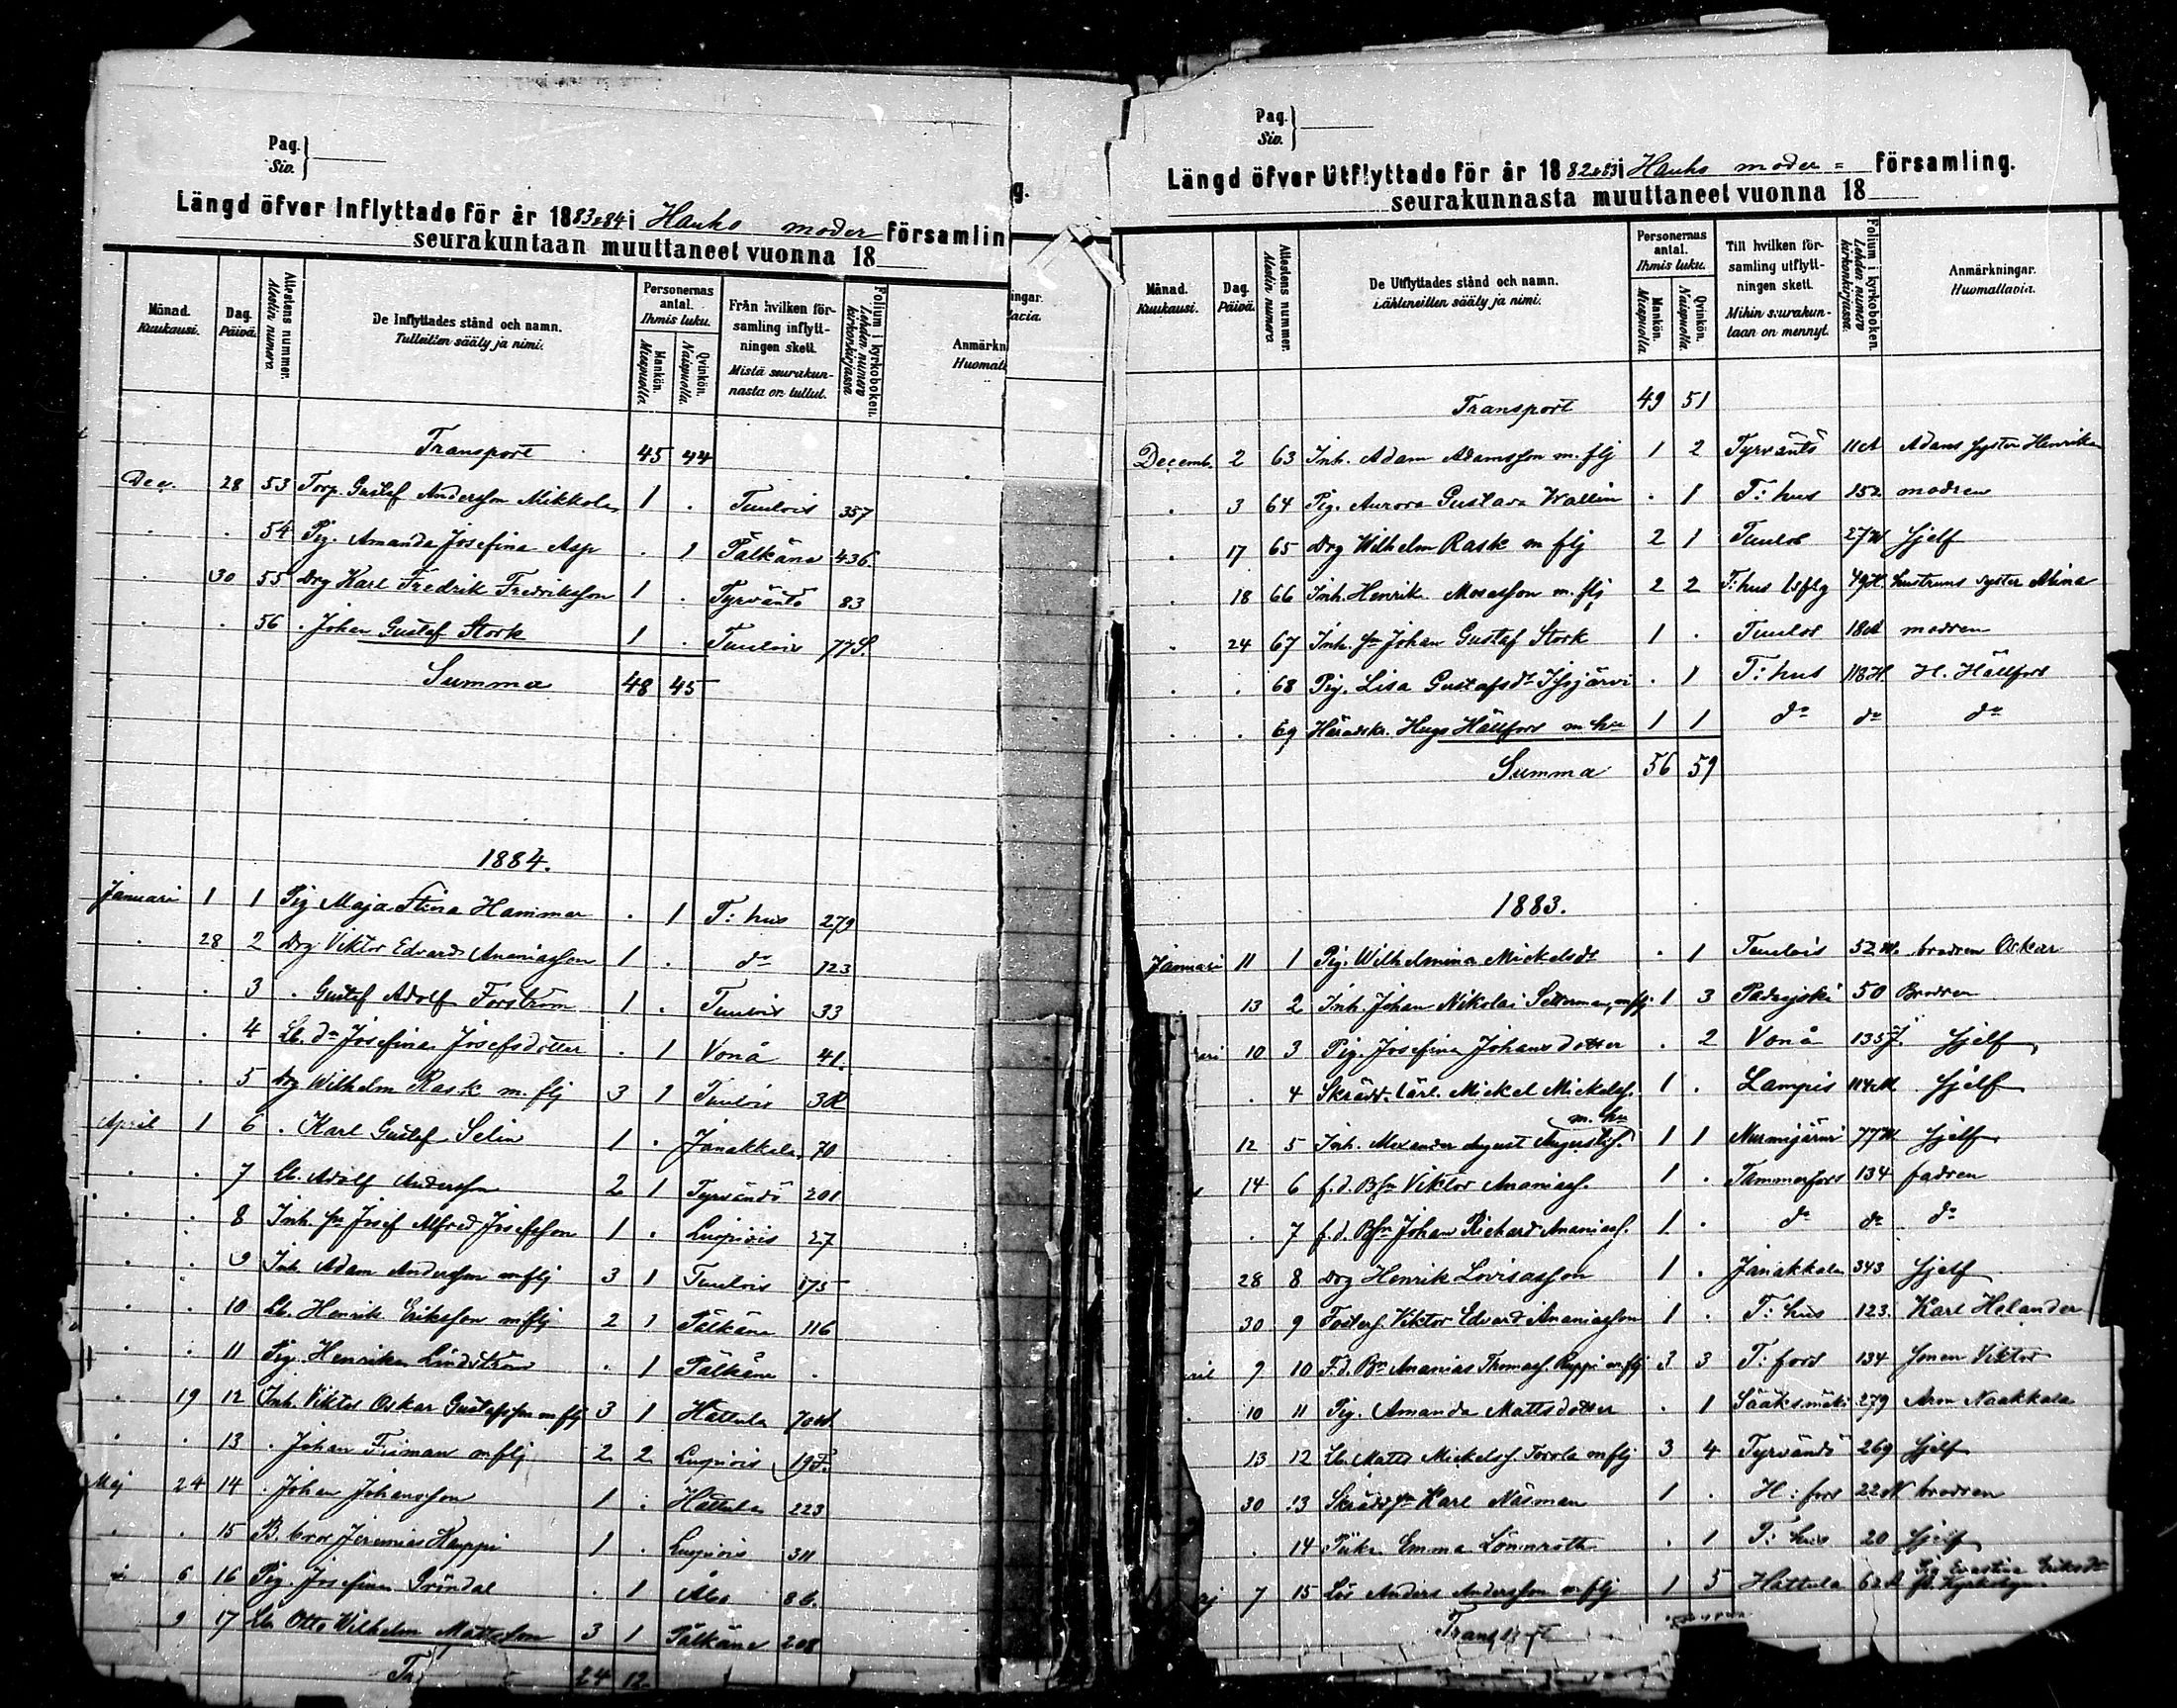 Pag.
Siv.
Längd öfver Inflyttade för år 1883 o 84 i Hauho moder församlin
seurakuntaan muuttaneet vuonna 18
Månad. Kuukausi.
Dag. Päivä.
Attestens nummer. Atestin numero
De Inflyttades stånd och namn. Tulleitten sääty ja nimi.
Personernas antal. Ihmis luku.
Mankön. Miespuolia.
Qvinkön. Naispuolia.
Från hvilken församling inflyttningen skett. Mistä seurakunnasta on tullut.
Folium i kyrkoboken. Lehden numero kirkonkirjassa
Anmärkn
Huomatt
Transport 45 44
Dec. 28 53 Torp. Gustaf Andersson Mikkola 1 . Tuulois 357
. . 54 Pig. Amanda Josefina Asp . 1 Pälkäne 436.
. 30 55 Drg Karl Fredrik Fredriksson 1 . Tyrväntö 83
. . 56 . Johan Gustaf Stork 1 . Tuulois 77 S.
Summa 48 45
1884.
Januari 1 1 Pig Maja Stina Hammar . 1 T: hus 279
. 28 2 Drg Viktor Edvard Ananiasson 1 . do 123
. . 3 . Gustaf Adolf Forström 1 . Tuulois 33
. . 4 Lb. dr Josefina Josefsdotter . 1 Vonå 41.
. . 5 Drg Wilhelm Rask m. flj 3 1 Tuulois 3R
April 1 6 . Karl Gustaf Selin 1 . Janakkala 70
. . 7 Lb. Adolf Andersson 2 1 Tyrvändö 201
. . 8 Inh. sn Josef Alfred Josefsson 1 . Luopiois 27
. . 9 Inh. Adam Andersson m flj 3 1 Tuulois 175
. . 10 Lb. Henrik Eriksson m flj 2 1 Pälkäne 116
. . 11 Pig. Henrika Lindström . 1 Pälkäne .
. 19 12 Inh. Viktor Oskar Gustafsson m flj 3 1 Hattula
. . 13 . Johan m flj 2 2 Luopiois 19
Maj 24 14 . Johan Johansson 1 . Hattula 223
. . 15 B. bror Jeremias Kauppi 1 . Luopiois 311
6 16 Pig. Josefina Gröndal . 1 Åbo 86.
9 17 Lb Otto Wilhelm Mattsson 3 1 Pälkäne 208
24 12.
g.
ingar.
tavia.
Pag.
Siv.
Längd öfver Utflyttade för år 1882 o 83 i Hauho moder = församling.
seurakunnasta muuttaneet vuonna 18
Månad. Kuukausi.
Dag. Päivä.
Attestens nummer. Atestin numero
De Utflyttades stånd och namn. Lähteneitten sääty ja nimi.
Personernas antal. Ihmis luku.
Mankön. Miespuolia.
Qvinkön. Naispuolia.
Till hvilken församling utflyttningen skett. Mihin seurakuntaan on mennyt.
Folium i kyrkoboken. Lehden numero kirkonkirjassa.
Anmärkningar. Huomattavia.
Transport 49 51
Decemb. 2 63 Inh. Adam Adamsson m. flj 1 2 Tyrväntö 11A Adams syster Henrika
. 3 64 Pig. Aurora Gustava Wallin . 1 T: hus 152 modren
. 17 65 Drg Wilhelm Rask m flj 2 1 Tuulos 27 sjelf
. 18 66 Inh. Henrik Mosesson m. flj 2 2 T: hus 49H. hustruns syster Mina
. 24 67 Inh. sn Johan Gustaf Stork 1 . Tuulos 18A modren
. . 68 Pig. Lisa Gustafsdr . 1 T: hus 118H. H. Hällfors
. . 69 Häradsk. Hugo Hällfors m. hu 1 1 do do do
Summa 56 59
1883.
Januari 11 1 Pig. Wilhelmina Mickelsdr . 1 Tuulois 52 M. brodren Oskar
13 2 Inh. Johan Nikolai Setterman, m flj 1 3 Padasjoki 50 Brodren
10 3 Pig. Josefina Johansdotter . 2 Vonå 135 J. sjelf
. 4 Skrädd. lärl. Mickel Mickelss. 1 . Lampis 114M sjelf
m. hu
12 5 Inh. Alexander August Augustss. 1 1 Nurmijärvi 77 sjelf
14 6 f. d. Bsn Viktor Ananiass. 1 . Tammerfors 134 fadren
. 7 f. d. Bsn Johan Richard Ananiass. 1 . do do do
28 8 Drg Henrik Lovisasson 1 . Janakkala 343 sjelf
30 9 Fosters. Viktor Edvard Ananiasson 1 . T: hus 123. Karl Helander
ril 9 10 F. d. Bn Ananias Thomass. m flj 3 3 T: fors 134 sonen Viktor
10 11 Pig. Amanda Mattsdotter . 1 Sääksmäki 279 Aron Naakkala
13 12 Lb. Matts Mickelss. m flj 3 4 Tyrvändö 269 sjelf
30 13 Skräddsn Karl Näsman 1 . H: fors 22 N brodren
. 14 Emma Lönnroth . 1 T: hus 20 sjelf
aj 7 15 Lös Anders Andersson m flj 1 5 Hattula 62 A Pig Evastina Eriksdr
Transport